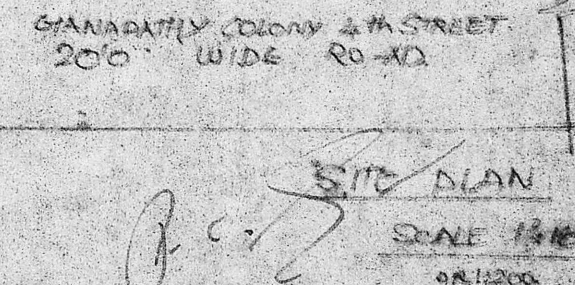 GIANADATHY COLONY 4th STREET
20'0" WIDE ROAD
SITE PLAN
SCALE
OR 1:200